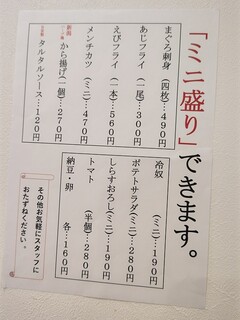 「ミニ盛り」できます。
まぐろ刺身（四枚）…490円
あじフライ（一尾）…300円
えびフライ（一本）…560円
メンチカツ（ミニ）…470円
から揚げ（一個）…270円
タルタルソース…120円
冷奴（ミニ）…190円
ポテトサラダ（ミニ）…280円
しらすおろし（ミニ）…190円
トマト（半個）…280円
納豆・卵 各…160円
その他お気軽にスタッフに
おたずねください。